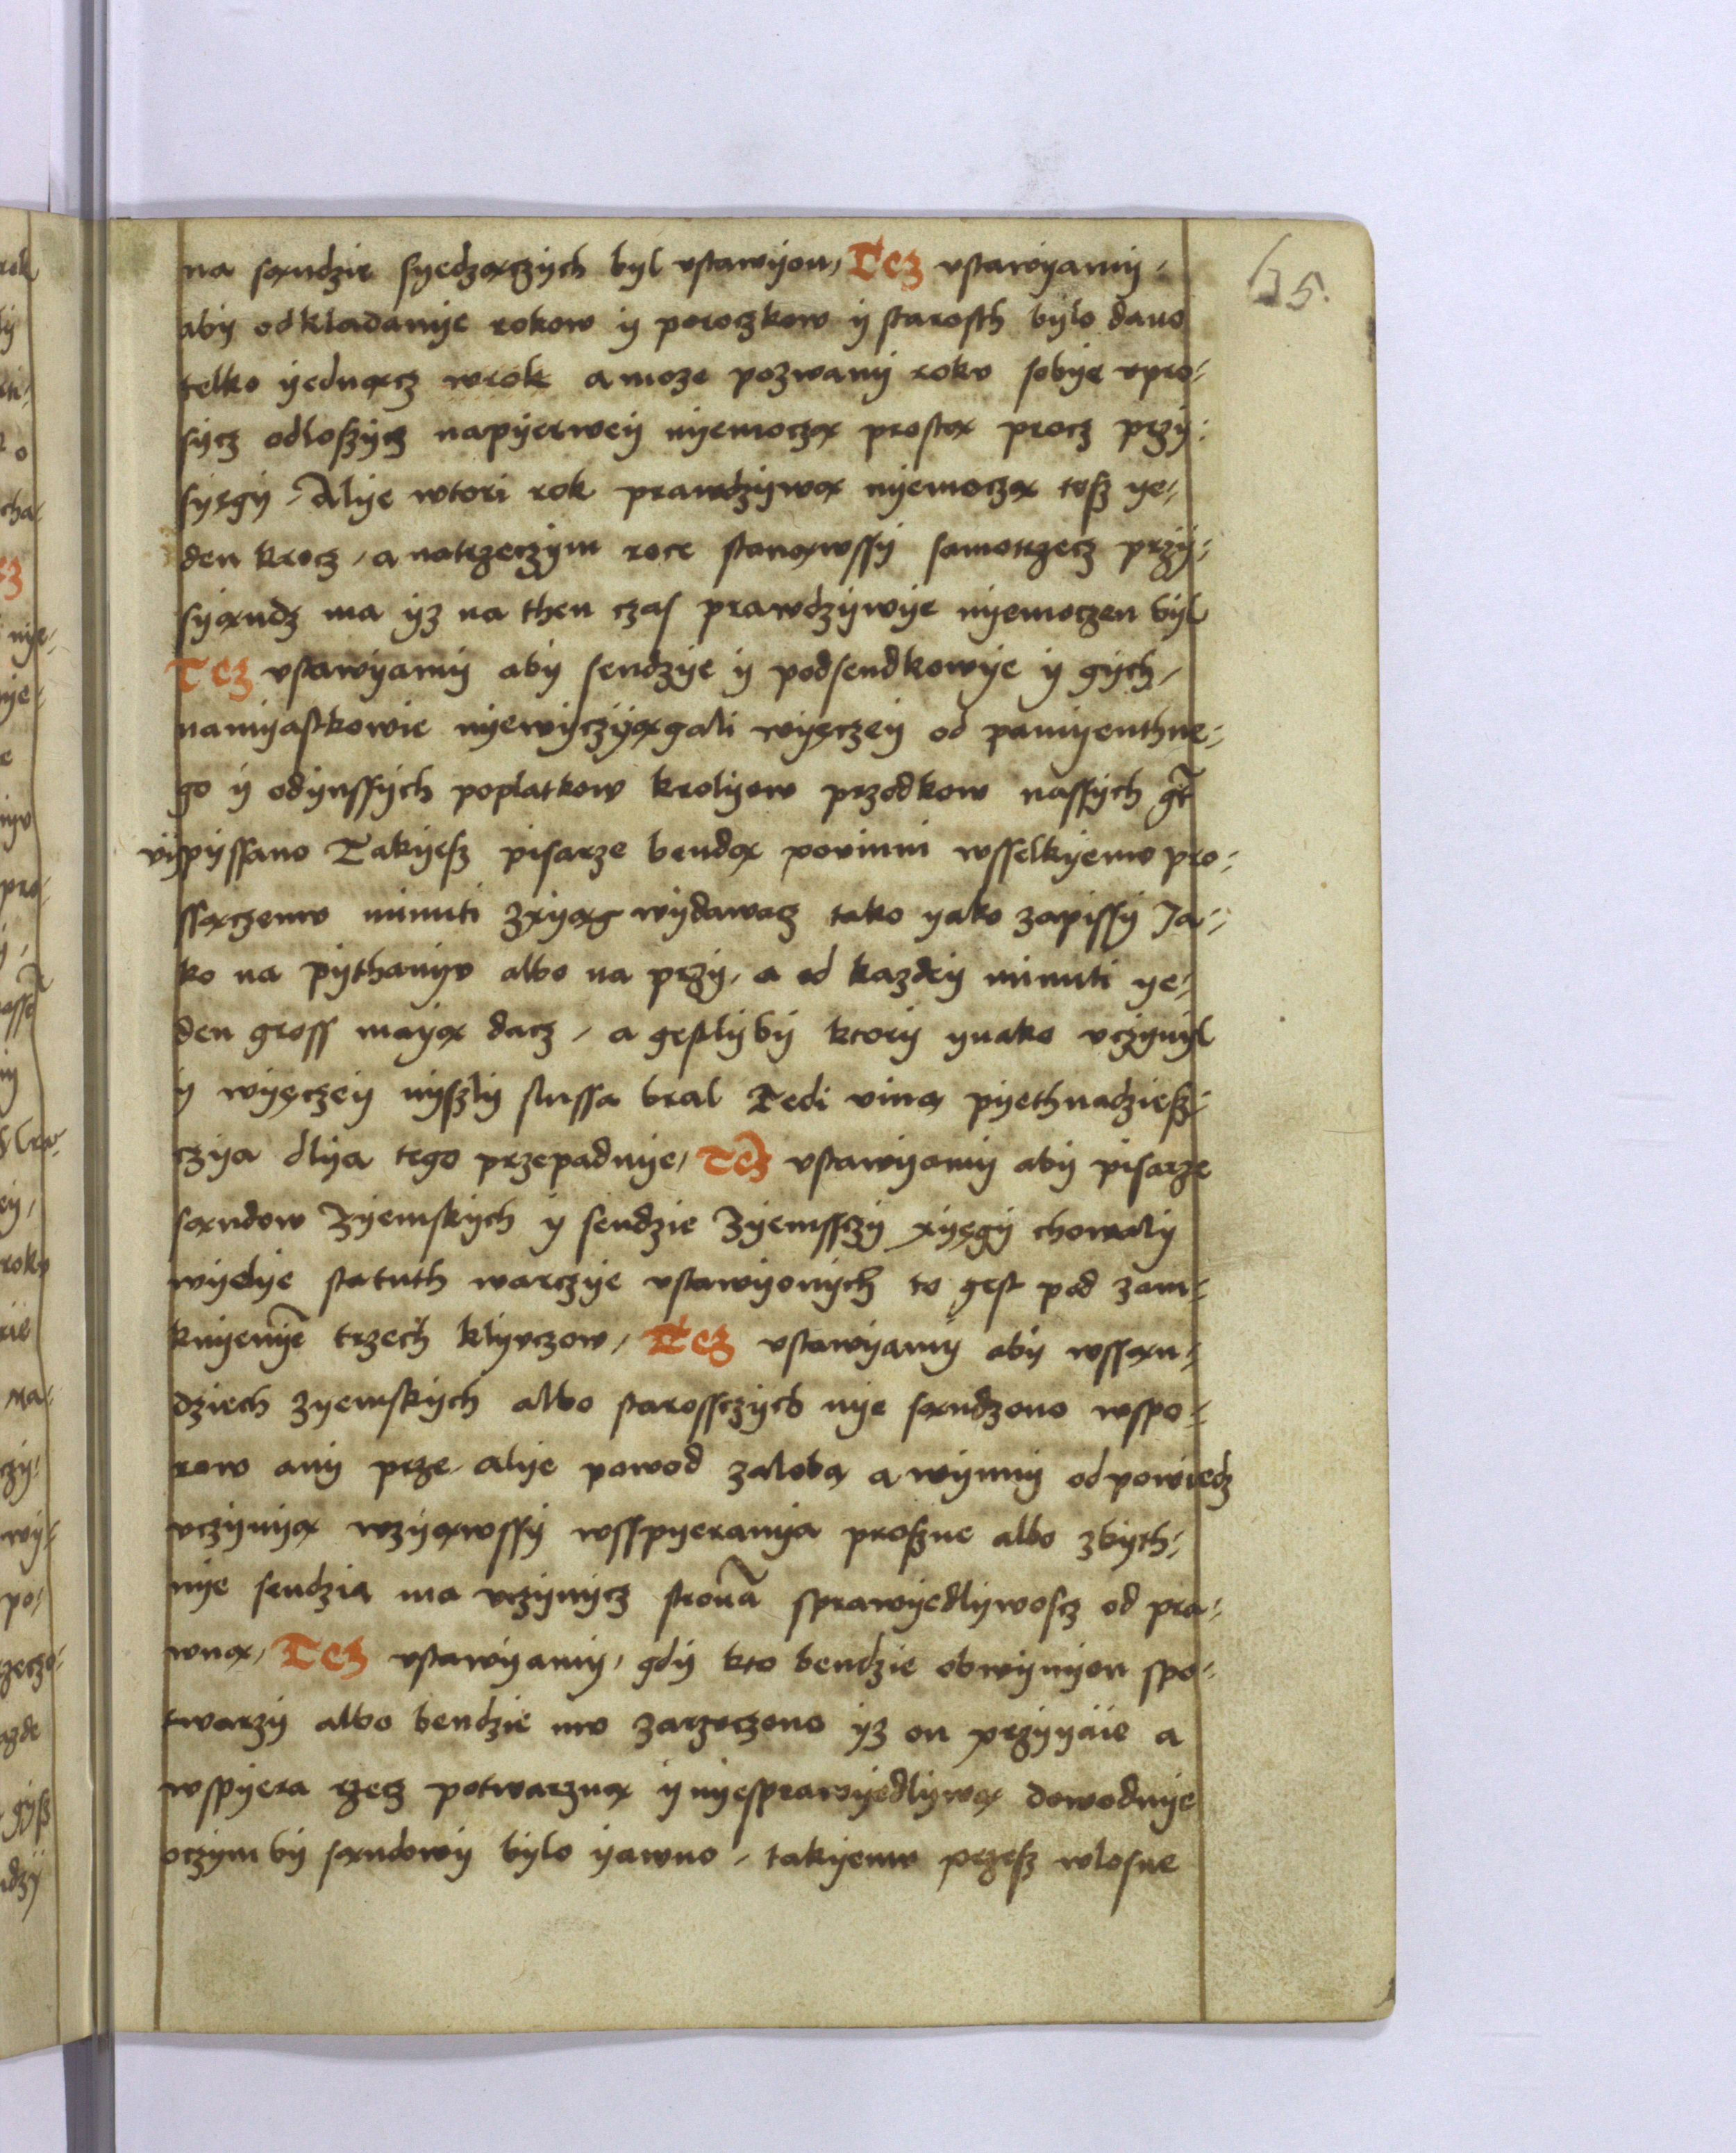 65.
na sąndzie syedzączych byl vstawyon, Tez vstawyamy,
aby odkladanye rokow y poroczkow y starosth bylo dano
telko yednącz wrok a moze pozwany roku sobye vpro-
sycz odloszycz napyerwey nyemoczą prostą procz przy-
syęgy, Alye wtori rok prawdzywą nyemoczą tesz ye-
den krocz, a natrzeczym roce stanąwssy samotrzecz przy-
syąndz ma yz na then czas prawdzywye nyemoczen byl
Tez vstawyamy aby sendzye y podsendkowye y gych,
namyastkowie nyewyczyągali wyęczey od pamyenthne-
go y odynssych poplatkow krolyow przodkow nassych
vypyssano Takyesz pisarze bendą povinni wsselkyemu pro-
ssączemu minuti zxyąg wydawacz tako yako zapissy Ja-
ko na pythanyv albo na przy, a od kazdey minuti ye-
den gross mayą dacz, a gestlyby ktory ynako vczynyl
y wyęczey nyszly slussa bral Tedi viną pyethnadziesz-
czya dlya tego przepadnye, Tez vstawyamy aby pisarze
sąndow Zyemskych y sendzie Zyemssczy xyęgy chowaly
wyelye statuth warczye vstawyonych to gest pod zam-
knyenye trzech klyvczow, Tez vstawyamy aby wssąn-
dziech zyemskych albo starossczych nye sąndzono wspo-
row any prze, alye powod zalobą a wynny odpowiedz
vczynyą wzyąwssy wsspyeranya proszne albo zbyth-
nye sendzia ma vczynycz strona sprawyedlywoscz od pra-
wną, Tez vstawyamy, gdy kto bendzie obwynyon spo-
twarzy albo bendzie mv zarzeczono yz on przyyaie a
wspyera rzecz potwarzną y nyesprawyedlywą dowodnye
oczym by sąndowy bylo yawno, takyemu przesz wlosne